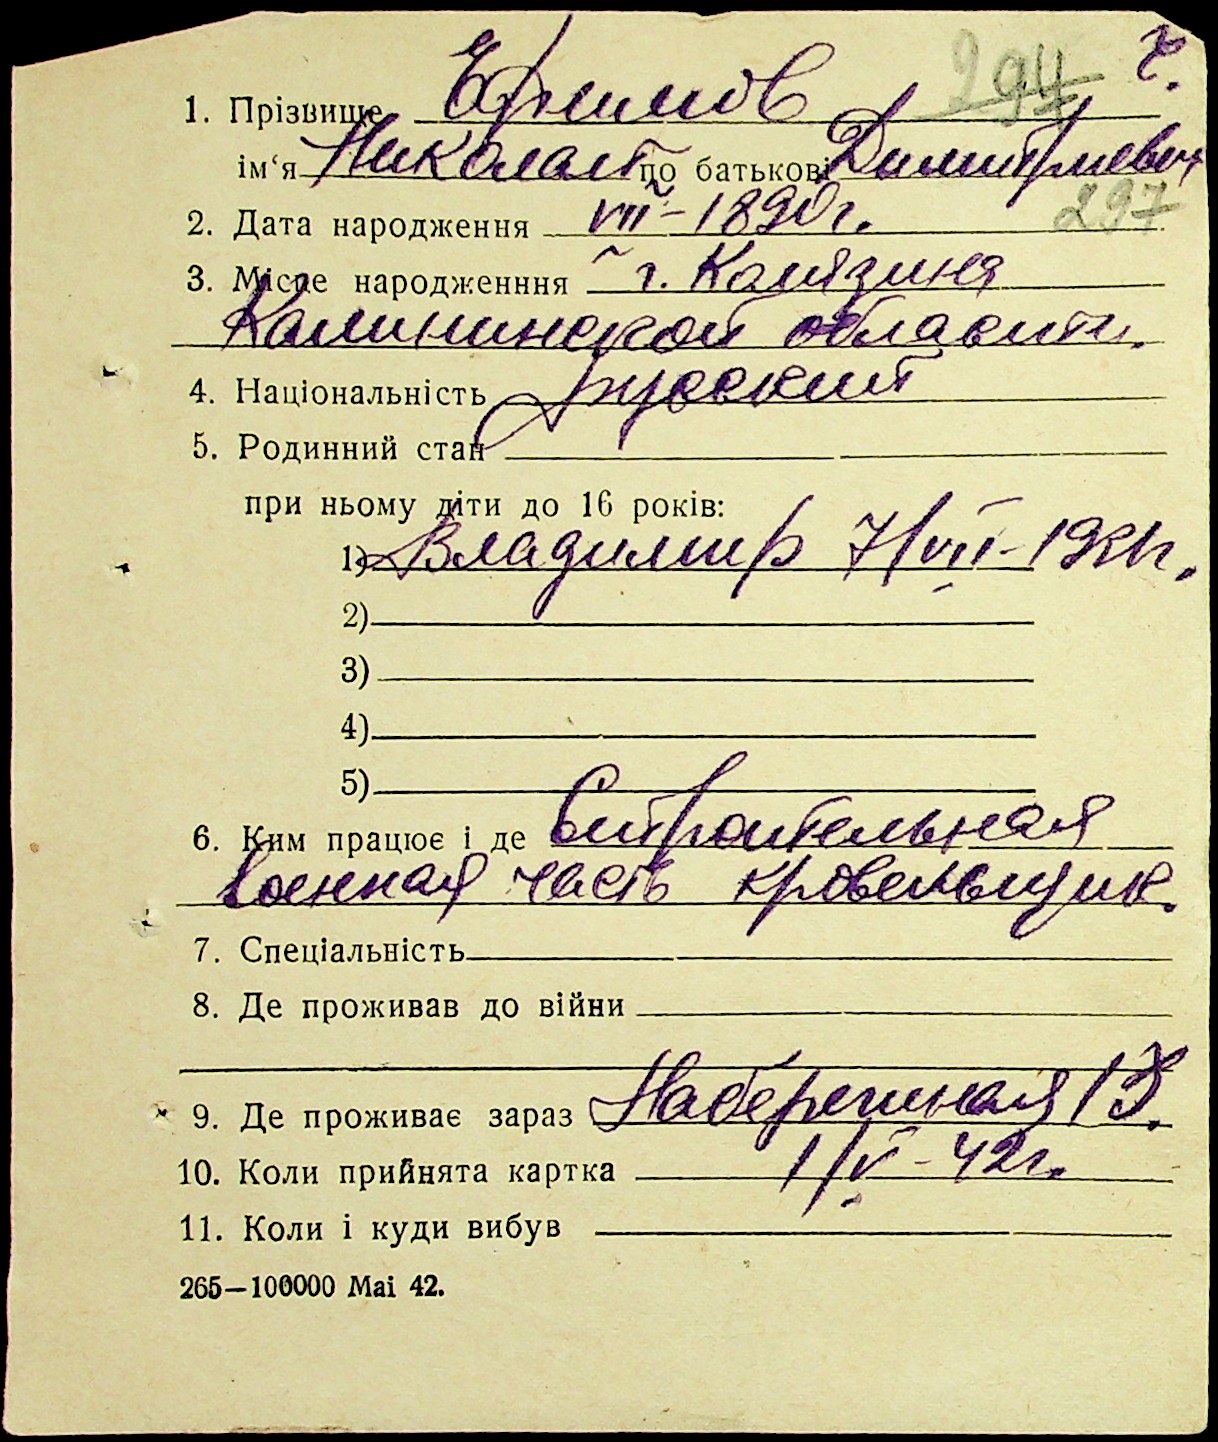 294 г.
1. Прізвище Ефимов
ім‘я Николай по батькові Димитриевич
297
2. Дата народження VII – 1890 г.
3. Місце народженння г. Калязина
Калининской области.
4. Національність русский
5. Родинний стан
при ньому діти до 16 років:
1) Владимир 7/VII – 192 г.
2)
3)
4)
5)
6. Ким працює і де Строительная
военная часть кровельщик.
7. Спеціальність
8. Де проживав до війни
9. Де проживає зараз Набережная 13.
10. Коли прийнята картка 1/V – 42 г.
11. Коли і куди вибув
265—100000 Маі 42.